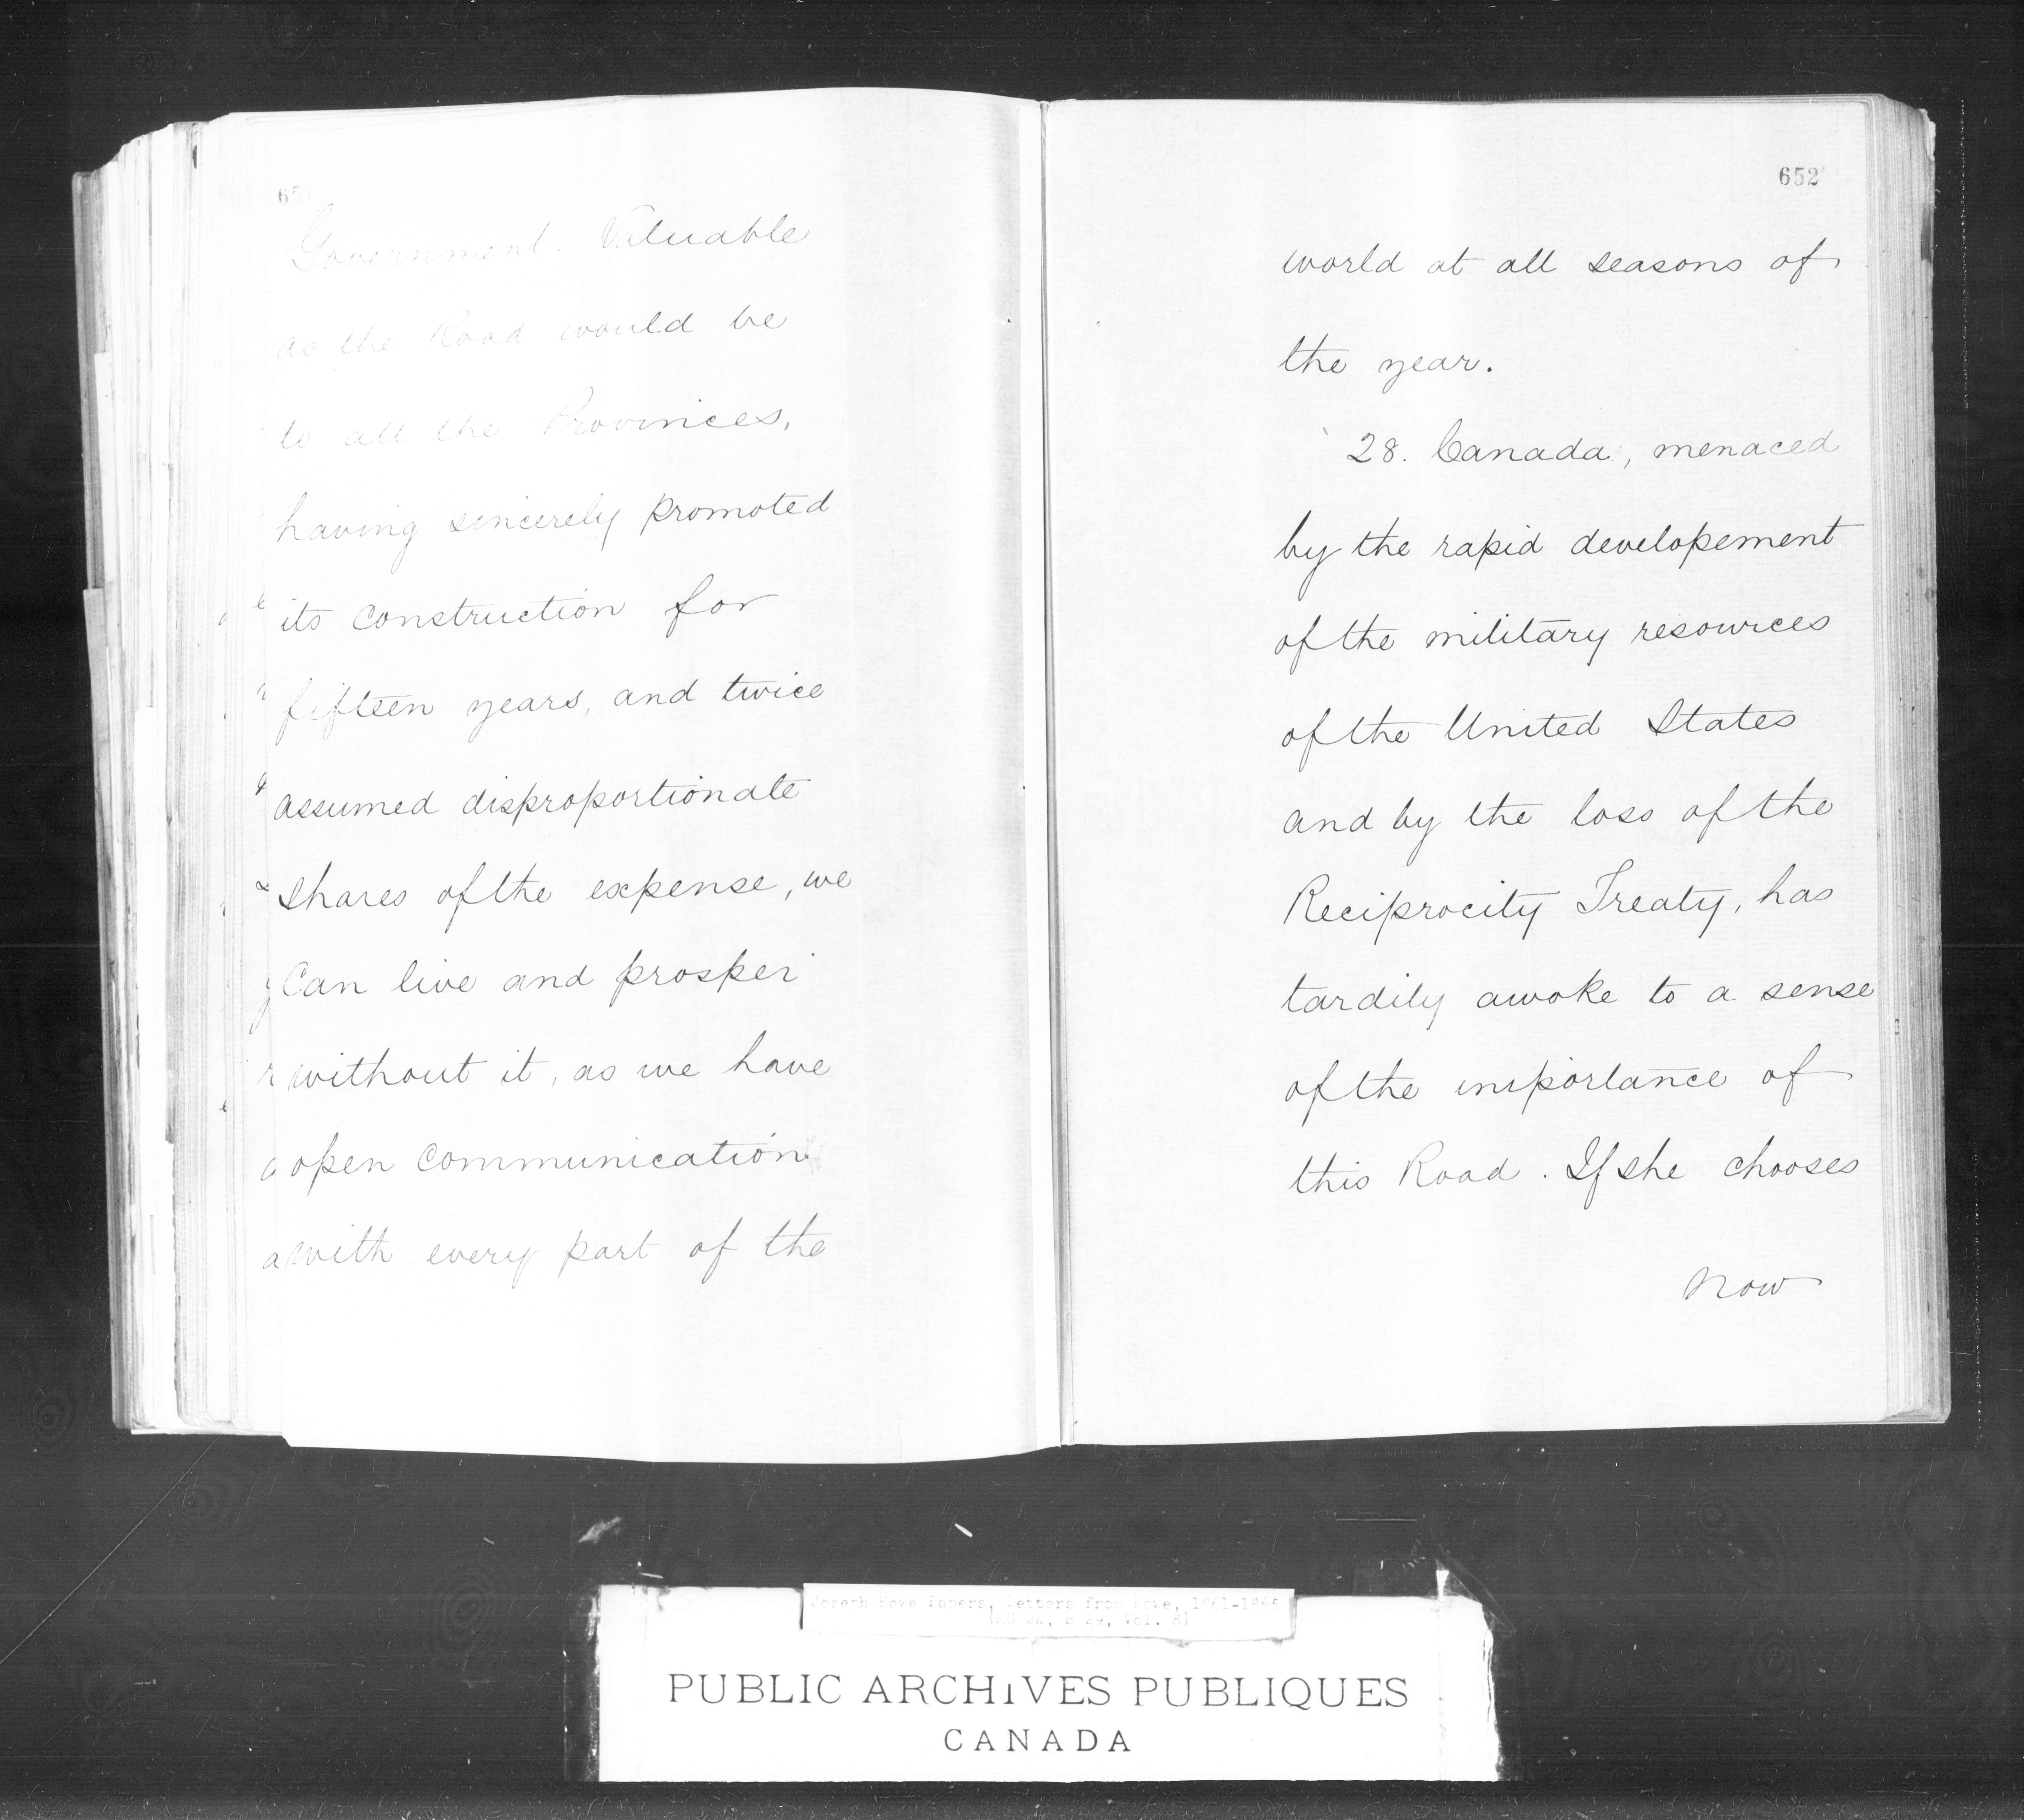 651
Government. Valuable
as the Road would be
to all the Provinces,
having sincerely promoted
its construction for
fifteen years, and twice
assumed disproportionate
shares of the expense, we
can live and prosper
without it, as we have
open communication
with every part of the
652
world at all seasons of
the year.
28. Canada, menaced
by the rapid developement
of the military resources
of the United States
and by the loss of the
Reciprocity Treaty, has
tardily awoke to a sense
of the importance of
this Road. If she chooses
now
Joseph Howe Papers, Letters from Howe, 1861-1866
(MG 24, B 29, Vol. 8)
PUBLIC ARCHIVES PUBLIQUES
CANADA